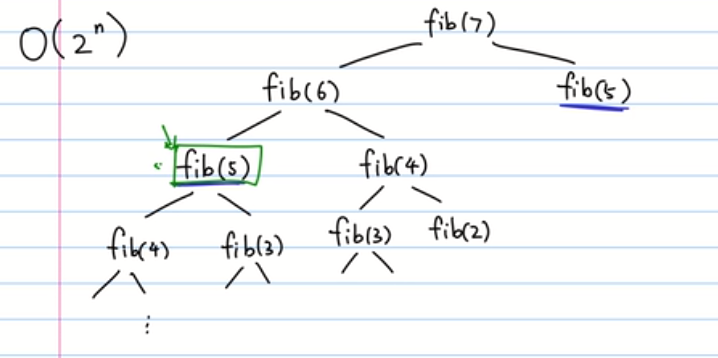 O(2ⁿ)
fib(7)
fib(6) fib(5)
fib(5) fib(4)
fib(4) fib(3) fib(3) fib(2)
⋮